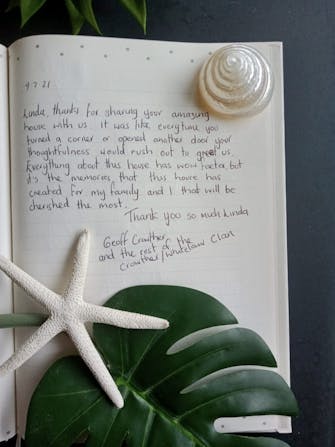 9.7.21
Linda, thanks for sharing your amazing
house with us. It was like everytime you
turned a corner or opened another door your
thoughtfulness would rush out to greet us.
Everything about this house has wow factor, but
it's the memories that this house has
created for my family and I that will be
cherished the most.
Thank you so much Linda
Geoff Crowther
and the rest of the
Crowther/Whitelaw Clan